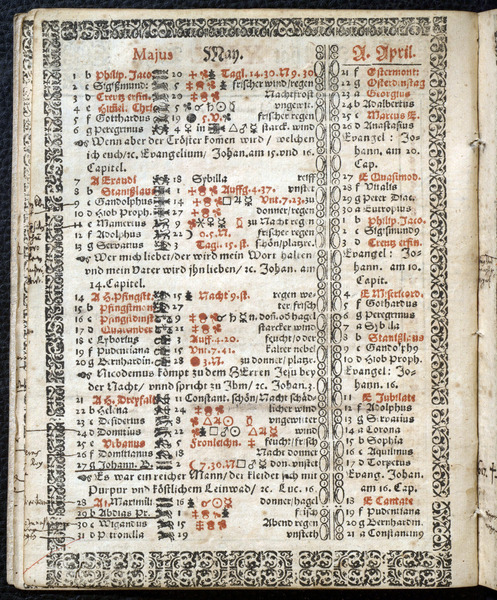 Majus May. A. April.
1 b Philip. Jaco 20 Tagl. 14. 30. N 9. 30
2 c Sigismund: 5 frischer wind regen
3 d Creutz erfin. Nachtfrost
4 e ungew it.
5 f Gotthardus 19 5. V. frischer regen
6 g Peregrinus 4 in starck. wind
Wenn aber der Tröster komen wird / welchen
ich euch / ꝛc. Evangelium / Johan. am 15. vnd 16.
Capitel.
7 A Exaudi 18 Sybilla reiff
8 b Stanislaus 1 Auffg. 4. 37. vnstet
9 c Gandolphus 14 Vnt. 7. 23. zu
10 d Hiob Proph. 27 donner / regen
11 e Mamertus 9 zu Nacht reg n
12 f Adolphus 22 0. 5. N. frischer regen
13 g Servatius 3 Tagl. 15. st. schön / platzre.
Wer mich liebet / der wird mein Wort halten
vnd mein Vater wird jhn lieben / ꝛc. Johan. am
14. Capitel.
14 A H. Pfingst. 15 Nacht 9. st. regen we-
15 b Pfingstmon. 27 ter frisch
16 c Pfingstdinst. 9 don. od. hagel
17 d Quatember 21 starcker wind
18 e Lybortus 3 Auff. 4. 20. feucht / oder
19 f Pudentiana 15 Vnt. 7. 41. kalter nebel
20 g Bernhardin. 28 3. N. zu donner / platzr.
Nicodemus kömpt zu dem HErren Jesu bey
der Nacht / vnnd spricht zu Jhm / ꝛc. Johan. 3.
21 A H. Dreyfalt 11 Constant. schön / Nacht schäd
22 b Helena 24 licher wind
23 c Desiderius vngewitter
24 d Domitius 22 wind
25 e Urbanus 5 Fronleichn. feucht / frisch
26 f Domitianus 18 Nacht donner
27 g Johann. B. 2 7. 36. N don. vnstet
Es war ein reicher Mann / der kleidet sich mit
Purpur vnd köstlichem Leinwad / ꝛc. Luc. 16.
28 A 1. Maximili 16 donner / hagel
29 b Abdias Pr. 1 frisch
30 c Wigandus 15 Abend regen
31 d Petronella vnsteth
21 f Estermont:
22 g Osterdinstag
23 A Georgius
24 b Adalbertus
25 c Marcus E.
26 d Anastasius
Evangel: Jo-
hann. am 20.
Cap.
27 E Quasimod.
28 f Vitalis
29 g Peter Mar.
30 a Eutropius
1 b Philip. Jaco.
2 c Sigismundy
3 d Creutz erfin.
Evangel: Jo-
hann. am 10.
Capit.
4 E Misericord.
5 f Gothardus
6 g Peregrinus
7 a Sybilla
8 b Stanislaus
9 c Gandolphy
10 d Hiob Proph.
Evangel: Jo-
hann. 16.
11 E Jubilate
12 f Adolphus
13 g Servatius
14 a Corona
15 b Sophia
16 c Aquilinus
17 d Torpetus
Evang. Johan.
am 16. Cap.
18 E Cantate
19 f Pudentiana
20 g Bernhardin.
21 a Constantiny